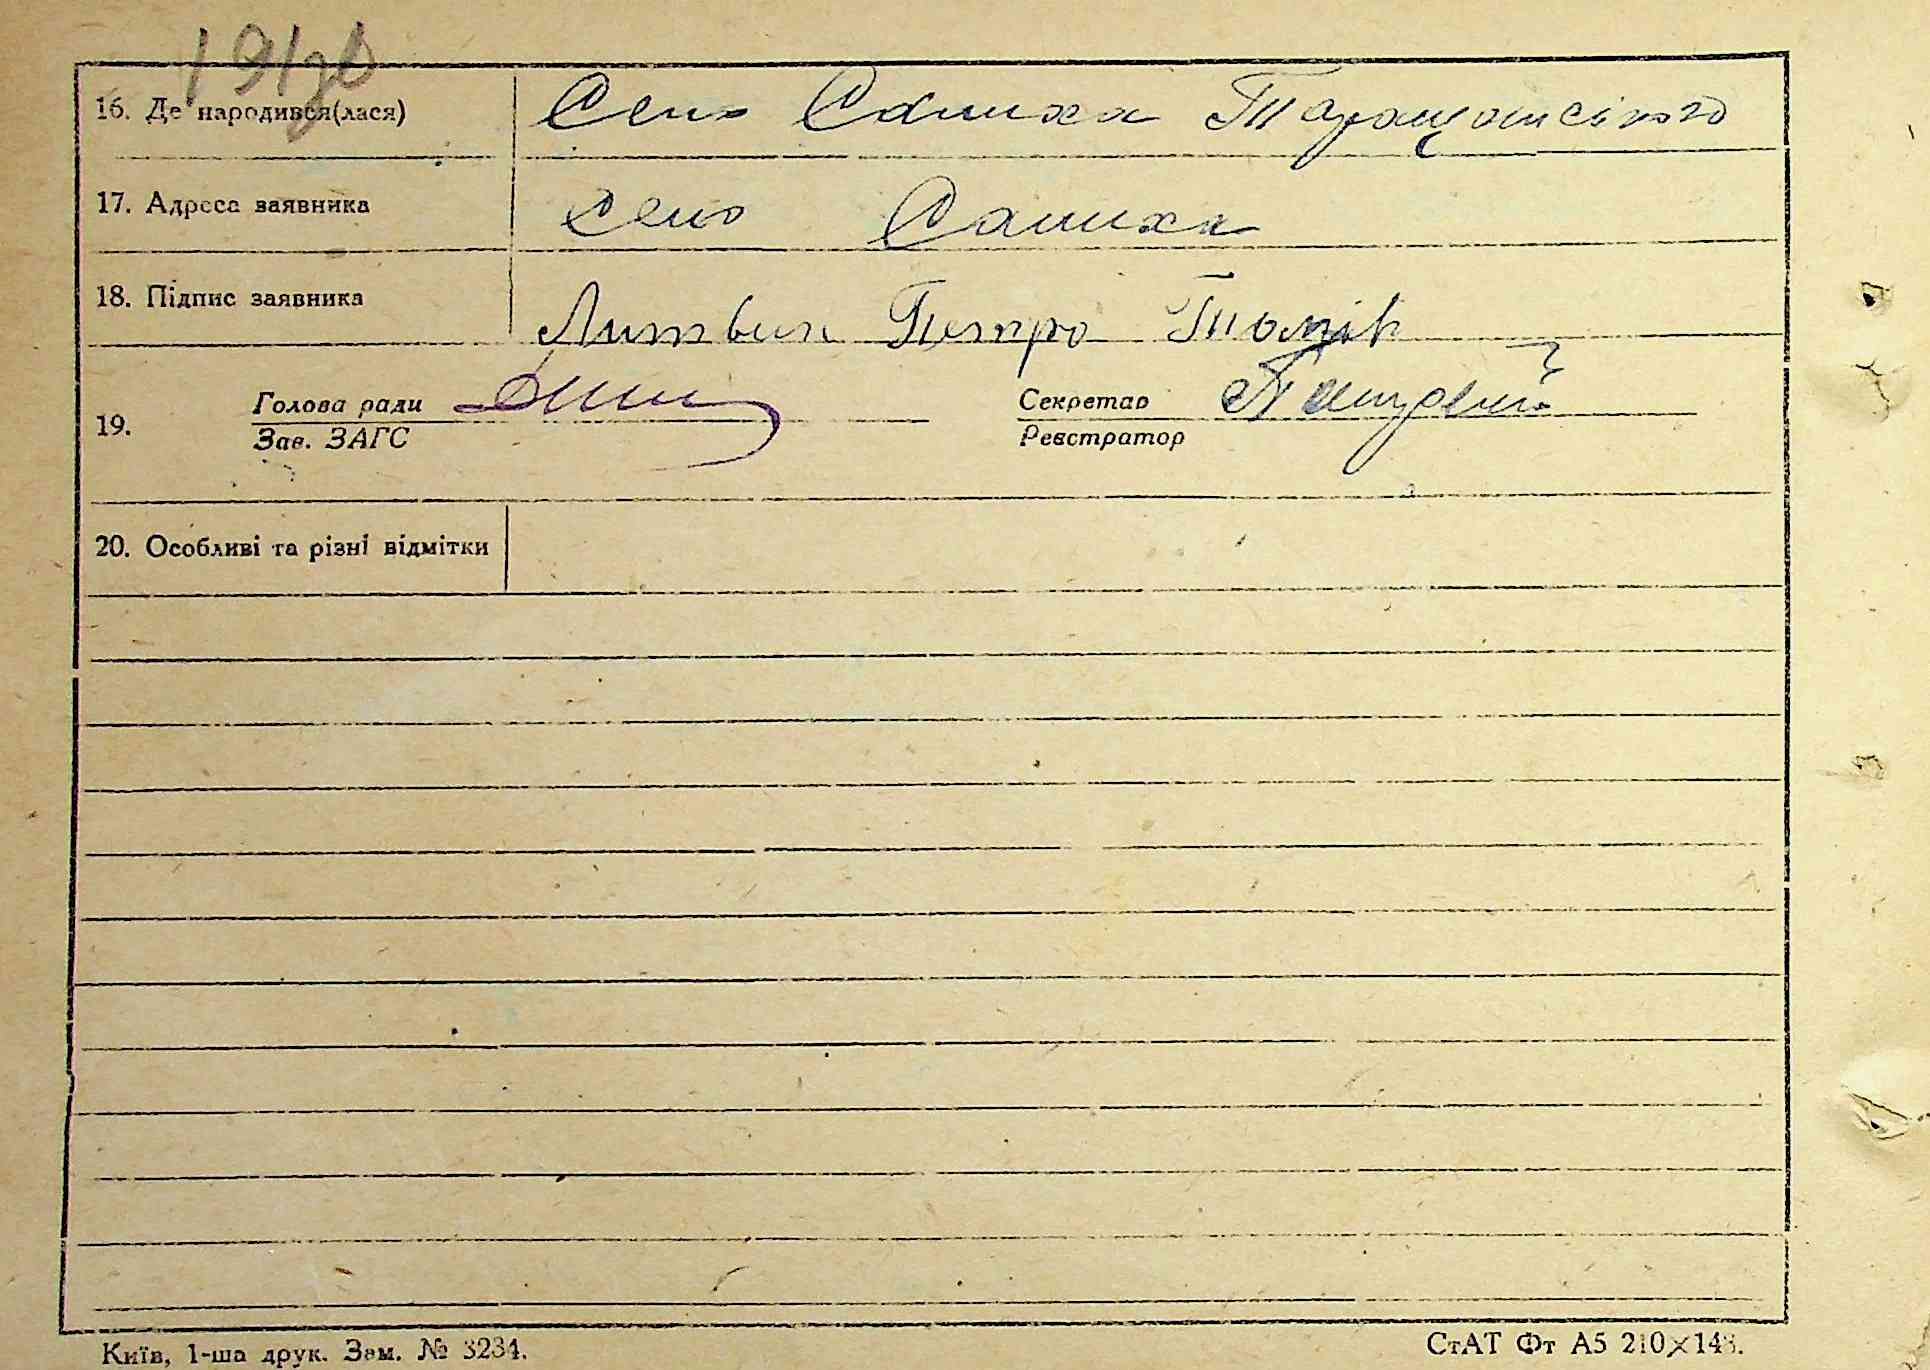 16. Де народився(лася) Село Салиха Таращанського
17. Адреса заявника село Салиха
18. Підпис заявника Литвин Петро
19. Голова ради Секретар
Зав. ЗАГС Реєстратор
20. Особливі та різні відмітки
Київ, 1-ша друк. Зам. № 3234. СтАТ Фт А5 210×148.